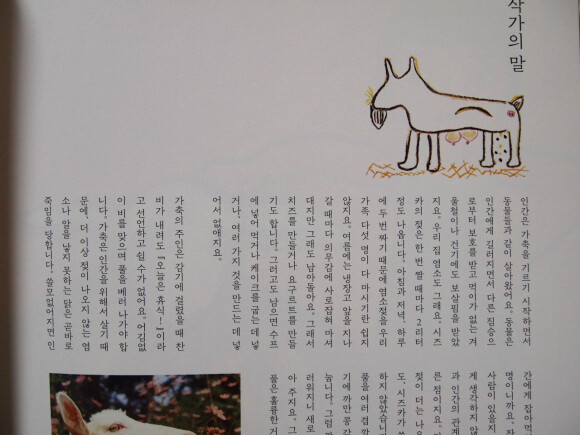 작가의 말
인간은 가축을 기르기 시작하면서
동물들과 같이 살아왔어요. 동물은
인간에게 길러지면서 다른 짐승으
로부터 보호를 받고 먹이가 없는 겨
울철이나 건기에도 보살핌을 받았
지요. 우리 집 염소도 그래요. 시즈
카의 젖은 한 번 짤 때마다 2리터
정도 나옵니다. 아침과 저녁, 하루
에 두 번 짜기 때문에 염소젖을 우리
가족 다섯 명이 다 마시기란 쉽지
않지요. 여름에는 냉장고 앞을 지나
갈 때마다 의무감에 사로잡혀 마셔
대지만 그래도 남아돌아요. 그래서
치즈를 만들거나 요구르트를 만들
기도 합니다. 그러고도 남으면 수프
에 넣어 먹거나 케이크를 굽는 데 넣
거나, 여러 가지 것을 만드는 데 넣
어서 없애지요.
가축의 주인은 감기에 걸렸을 때 찬
비가 내려도 『오늘은 휴식!』이라
고 선언하고 쉴 수가 없어요. 어김없
이 비를 맞으며 풀을 베러 나가야 합
니다. 가축은 인간을 위해서 살기 때
문에, 더 이상 젖이 나오지 않는 염
소나 알을 낳지 못하는 닭은 곧바로
죽임을 당합니다. 쓸모없어지면 인
간에게 잡아먹
명이니까요. 
사람이 있을지
게 생각하지 않
과 인간의 관계
른 점이지요. 
젖이 더는 나오
도, 시즈카가 
하지 않았습니
풀을 여러 겹 
기에 까만 콩 
눕니다. 그럼 
러워지니 새로
아 주지요. 그
풀은 훌륭한 거